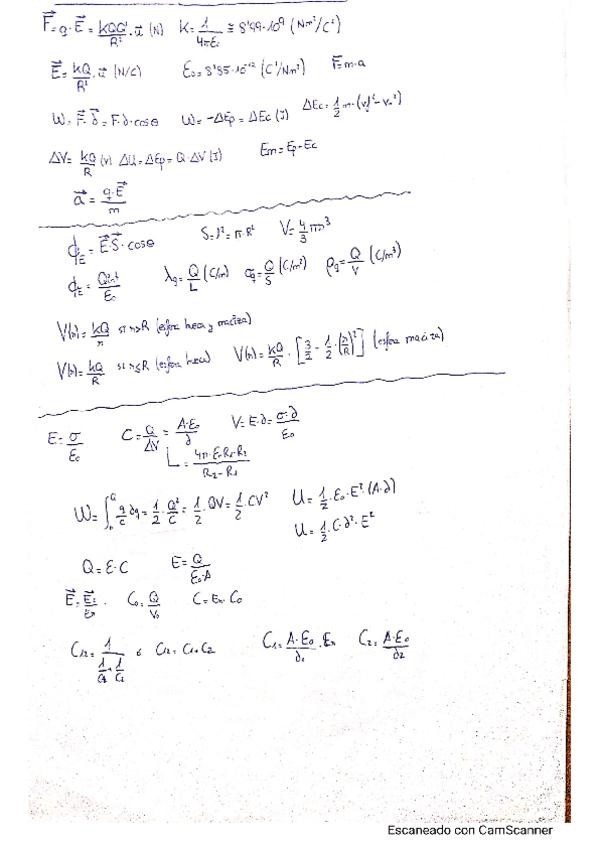 F⃗ = q·E⃗ = kQQ'/R² · u⃗ (N)   K = 1/4πε₀ ≅ 8'99·10⁹ (Nm²/C²)
E⃗ = kQ/R² · u⃗ (N/C)   ε₀ = 8'85·10⁻¹² (C²/Nm²)   F⃗ = m·a
W = F⃗·d⃗ = F·d·cosθ   W = -ΔEp = ΔEc (J)   ΔEc = 1/2 m·(vf² - vo²)
ΔV = kQ/R (V)   ΔU = ΔEp = Q·ΔV (J)   Em = Ep - Ec
a⃗ = q·E⃗/m
ϕE = E⃗·S⃗·cosθ   S = l² = π·R²   V = 4/3 πr³
ϕE = Qint/ε₀   λq = Q/L (C/m)   σq = Q/S (C/m²)   ρq = Q/V (C/m³)
V(r) = kQ/r si r>R (esfera hueca y maciza)
V(r) = kQ/R si r≤R (esfera hueca)   V(r) = kQ/R · [3/2 - 1/2·(r/R)²] (esfera maciza)
E = σ/ε₀   C = Q/ΔV = A·ε₀/d   V = E·d = σ·d/ε₀
= 4π·ε₀·R₁·R₂/R₂-R₁
W = ∫ q/C dq = 1/2·Q²/C = 1/2·QV = 1/2·CV²   U = 1/2·ε₀·E²·(A·d)
U = 1/2·C·d²·E²
Q = ε·C   E = Q/ε₀·A
C₀ = Q/V₀   C = εr·C₀
C₁₂ = 1/(1/C₁+1/C₂) ó C₁₂ = C₁+C₂   C₁ = A·ε₀/d₁ · εr   C₂ = A·ε₀/d₂
Escaneado con CamScanner